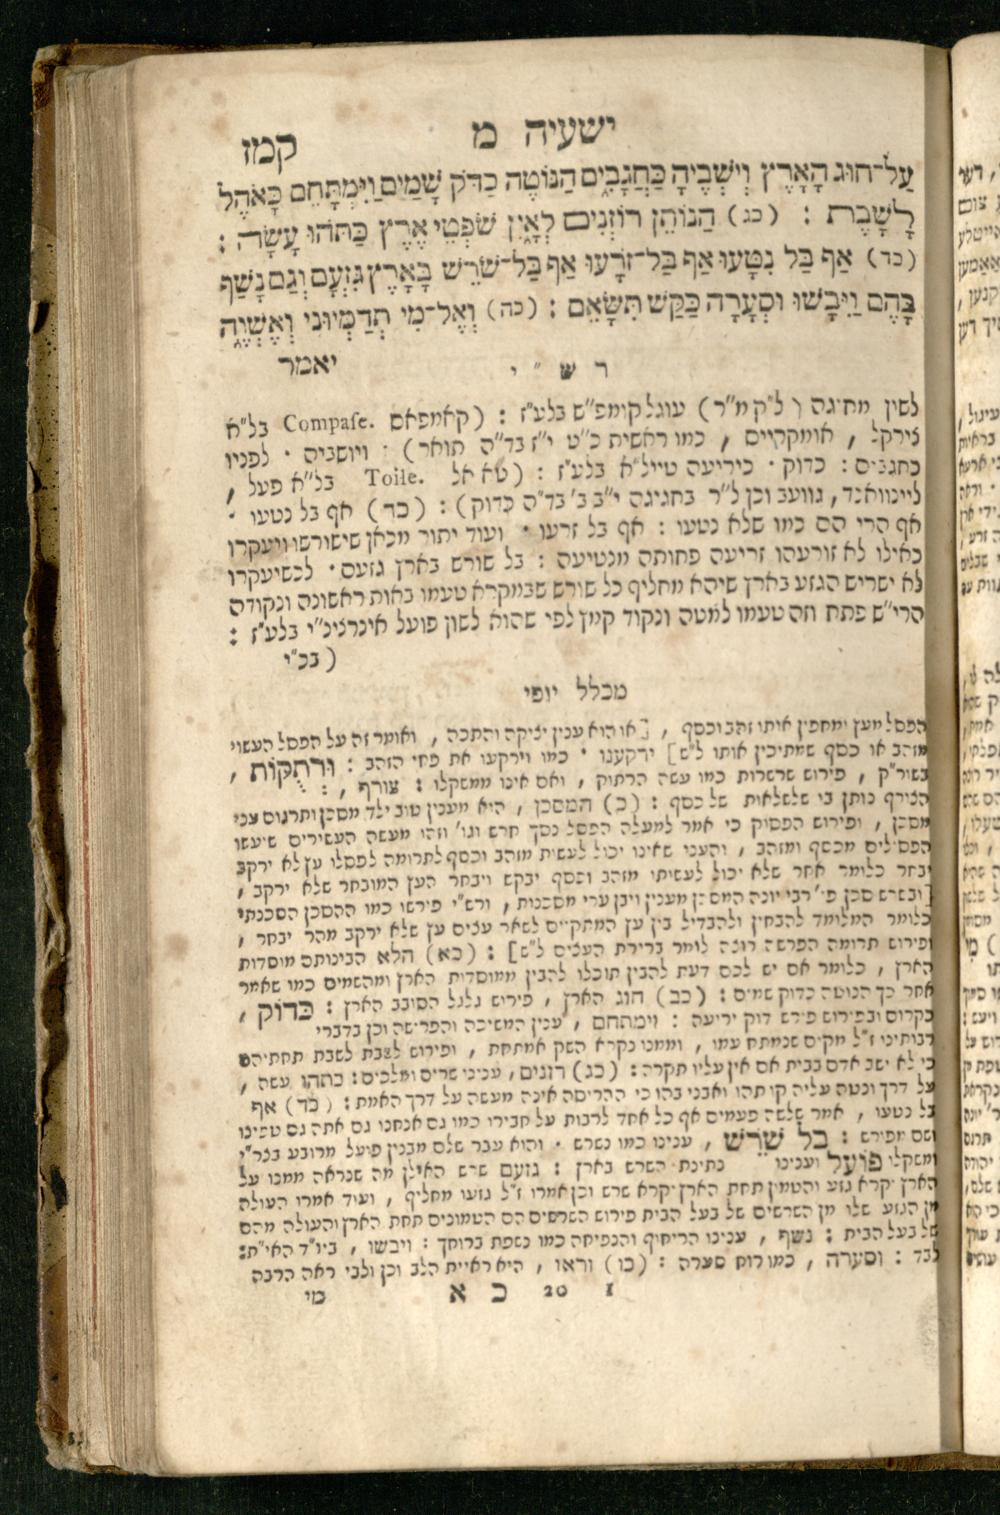 ישעיה מ קמז
עַל־חוּג הָאָרֶץ וְיֹשְׁבֶיהָ כַּחֲגָבִים הַנּוֹטֶה כַדֹּק שָׁמַיִם וַיִּמְתָּחֵם כָּאֹהֶל
לָשָׁבֶת : (כג) הַנּוֹתֵן רוֹזְנִים לְאָיִן שֹׁפְטֵי אֶרֶץ כַּתֹּהוּ עָשָׂה :
(כד) אַף בַּל נִטָּעוּ אַף בַּל־זֹרָעוּ אַף בַּל־שֹׁרֵשׁ בָּאָרֶץ גִּזְעָם וְגַם נָשַׁף
בָּהֶם וַיִּבָשׁוּ וּסְעָרָה כַּקַּשׁ תִּשָּׂאֵם : (כה) וְאֶל־מִי תְדַמְּיוּנִי וְאֶשְׁוֶה
יאמר
ר ש " י
לשון מחוגה (ל"ק מ"ר) עוגל קומפ"ש בלע"ז : (קאמפאס Compase. בל"א
צירקל , אומקרייס , כמו ראשית כ"ט י"ז בד"ה תואר) · ויושביה · לפניו
כחגבים : כדוק · כיריעה טייל"א בלע"ז : (טאאל Toile. בל"א פעל ,
ליינוואנד , גוועב וכן ל"ר בחגיגה י"ב ב' בד"ה כדוק) : (כד) אף בל נטעו ·
אף הרי הם כמו שלא נטעו : אף בל זרעו · ועוד יתור מכאן שישורשו ויעקרו
כאילו לא זורעהו זריעה פחותה מנטיעה : בל שורש בארץ גזעם · לכשיעקרו
לא ישריש הגזע בארץ שיהא מחליף כל שורש שבמקרא טעמו באות ראשונה ונקודה
הרי"ש פתח וזה טעמו למטה ונקוד קמץ לפי שהוא לשון פועל אינרצינ"י בלע"ז :
(בכ"י
מכלל יופי
הפסל מעץ ומחפין אותו זהב וכסף , [או הוא ענין יציקה והתכה , ואומר זה על הפסל העשוי
מזהב או כסף שמתיכין אותו ל"ש] ירקענו · כמו וירקעו את פחי הזהב : וּרְתֻקוֹת ,
בשור"ק , פירוש שרשרות כמו עשה הרתוק , ואם אינו ממשקלו : צורף ,
הצורף נותן בי שלשלאות של כסף : (כ) המסכן , היא מענין טוב ילד מסכן ותרגום עני
מסכן , ופירוש הפסוק כי אמר למעלה הפסל נסך חרש וגו' וזהו מעשה העשירים שיעשו
הפסילים מכסף ומזהב , והעני שאינו יכול לעשות מזהב וכסף לתרומה לפסלו עץ לא ירקב
יבחר כלומר אחר שלא יכול לעשותו מזהב וכסף יבקש ויבחר העץ המובחר שלא ירקב ,
[ובשרש סכן פי' רבי יונה המסכן מענין ויבן ערי מסכנות , ורש"י פירשו כמו ההסכן הסכנתי
כלומר המלומד להבחין ולהבדיל בין עץ המתקיים לשאר עצים עץ שלא ירקב מהר יבחר ,
ופירוש תרומה הפרשה רוצה לומר ברירת העצים ל"ש] : (כא) הלא הבינותם מוסדות
הארץ , כלומר אם יש לכם דעת להבין תוכלו להבין ממוסדות הארץ ומהשמים כמו שאמר
אחר כך הנוטה כדוק שמים : (כב) חוג הארץ , פירוש גלגל הסובב הארץ : כַּדּוֹק ,
כקרום ובפירוש פירש דוק יריעה : וימתחם , ענין המשיכה והפרישה וכן בדברי
רבותינו ז"ל מקום שנמתח עמו , וממנו נקרא השק אמתחת , ופירוש לשבת לשבת תחתיהם
כי לא ישב אדם בבית אם אין עליו תקרה : (כג) רוזנים , ענינו שרים ומלכים : כתהו עשה ,
על דרך ונטה עליה קו תהו ואבני בהו כי ההריסה אינה מעשה על דרך האמת : (כד) אף
בל נטעו , אמר שלשה פעמים אף כל אחד לרבות על חבירו כמו גם אנחנו גם אתה גם טפינו
ושם מפירש : בל שֹׁרֵשׁ , ענינו כמו נשרש · והוא עבר שלם מבנין פועל מרובע בצר"י
ומשקלו פוֹעֵל וענינו כתינת השרש בארץ : גזעם שרש האילן מה שנראה ממנו על
הארץ יקרא גזע והטמון תחת הארץ יקרא שרש וכן אמרו ז"ל גזעו מחליף , ועוד אמרו העולה
מן הגזע שלו מן השרשים של בעל הבית פירוש השרשים הם הטמונים תחת הארץ והעולה מהם
של בעל הבית : נשף , ענינו הריחוף והנפיחה כמו נשפת ברוחך : ויבשו , ביו"ד האי"תן
לבד : וסערה , כמו רוח סערה : (כו) וראו , היא ראיית הלב וכן ולבי ראה הרבה
1 20 כ א מי